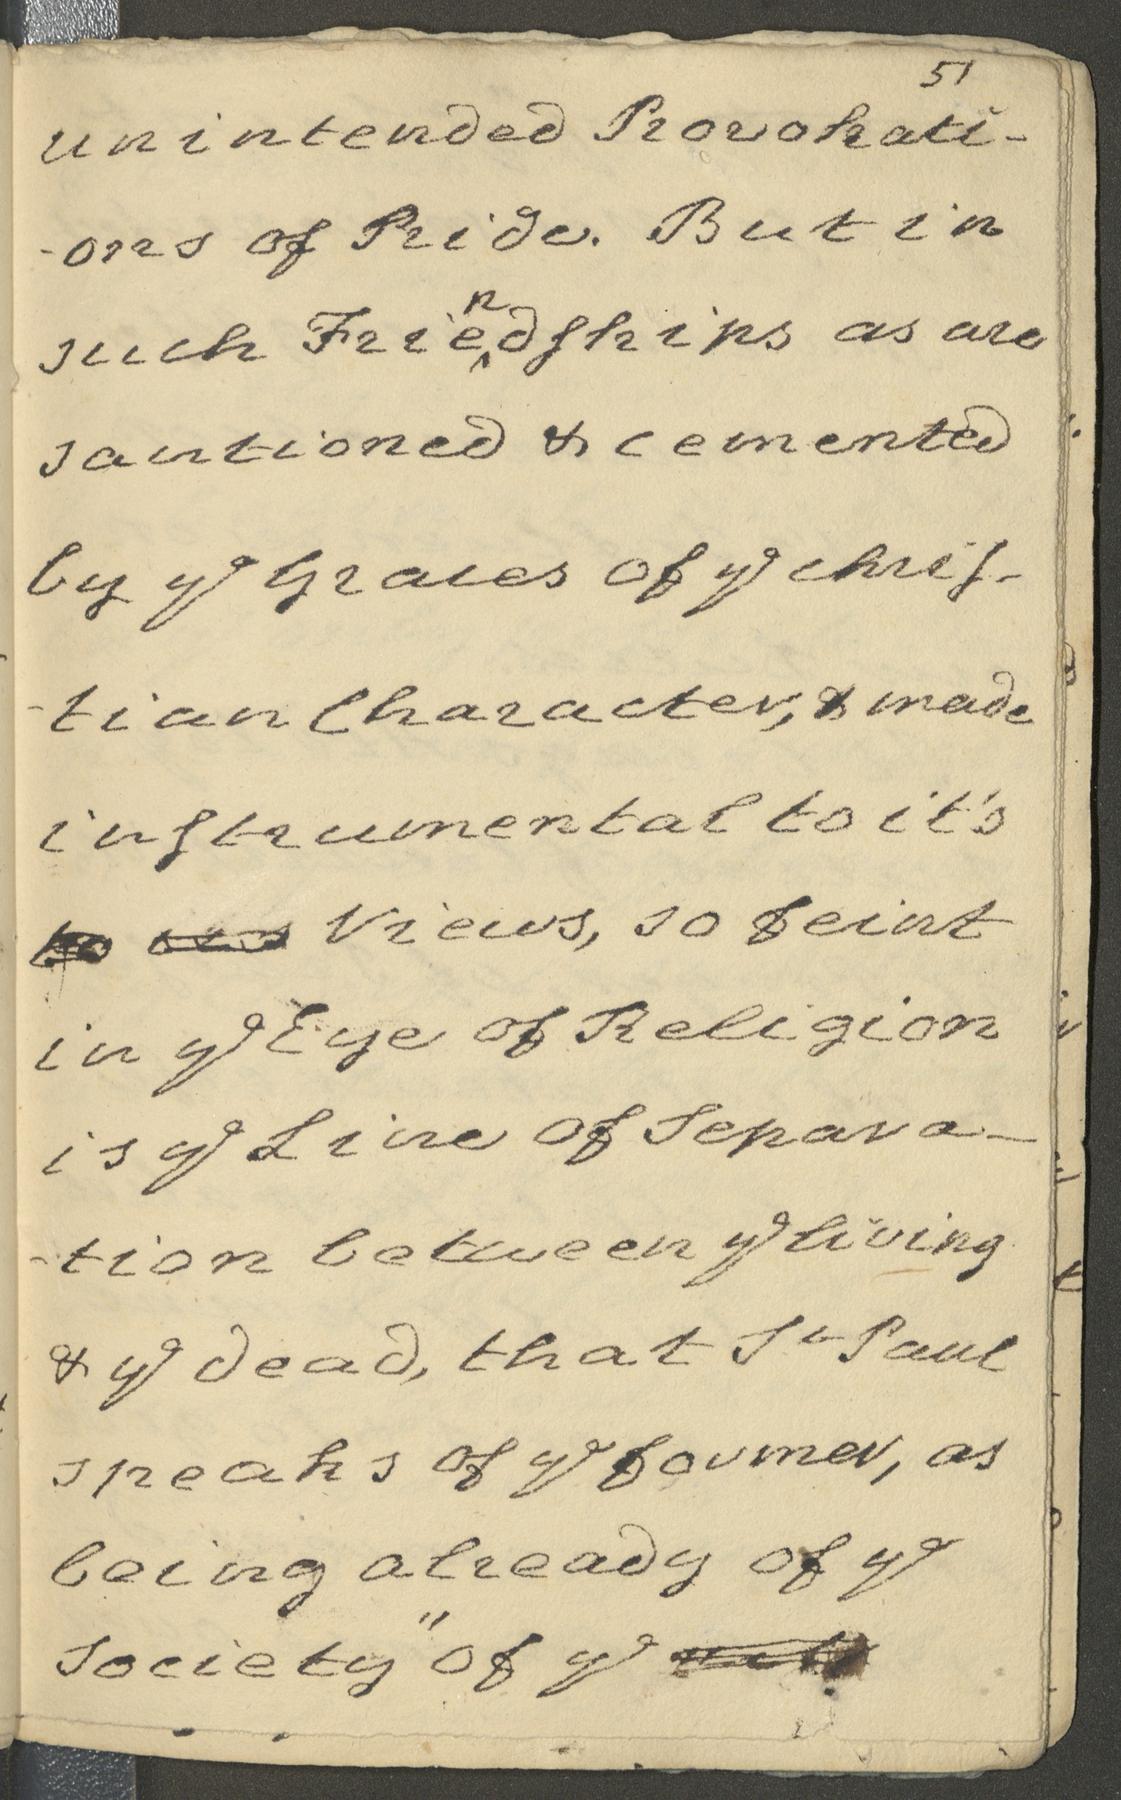 51
unintended Provokati-
-ons of Pride. But in
such Friendships as are
santioned & cemented
by ye Graces of ye chris-
-tian Character, & made
instrumental to it's
Views, so feint
in ye Eye of Religion
is ye Line of Separa-
-tion between ye living
& ye dead, that St Paul
speaks of ye former, as
being already of ye
society "of ye